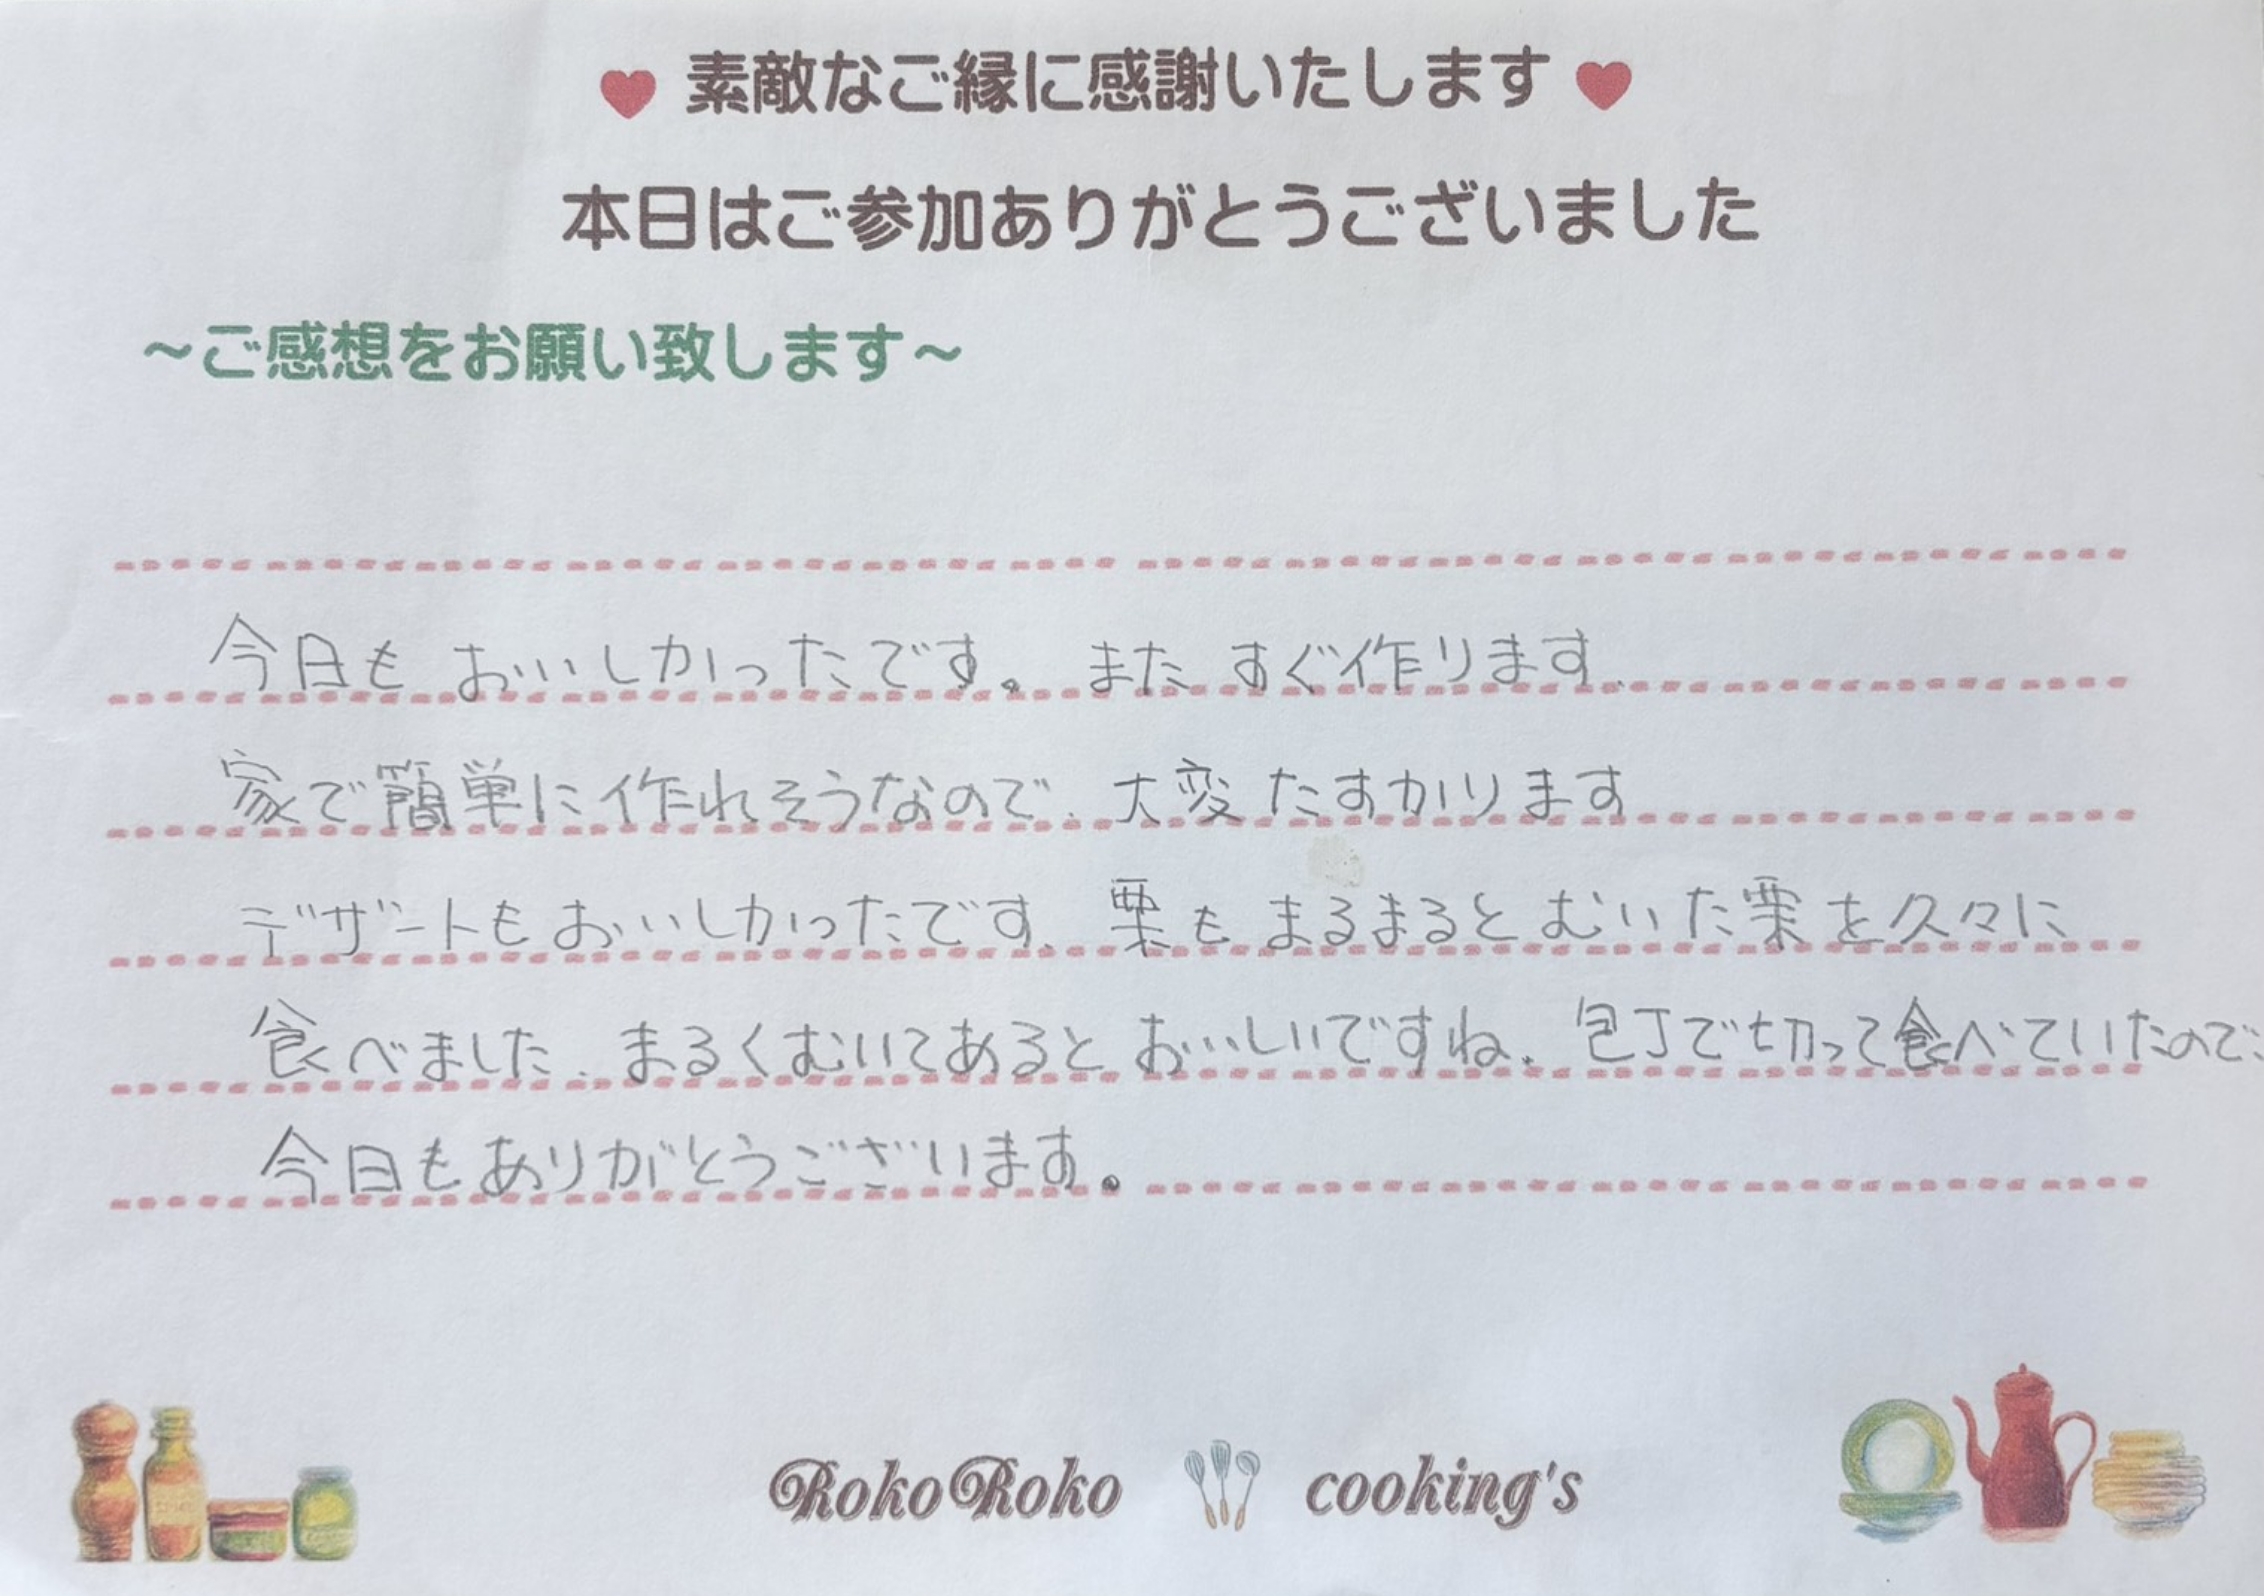 ♥ 素敵なご縁に感謝いたします ♥
本日はご参加ありがとうございました
～ご感想をお願い致します～
今日も おいしかったです。 また すぐ作ります.
家で簡単に作れそうなので、大変たすかります
デザートもおいしかったです、栗も まるまるとむいた栗を久々に
食べました、まるくむいてあると おいしいですね、包丁で切って食べていたので、
今日もありがとうございます。
RokoRoko cooking's